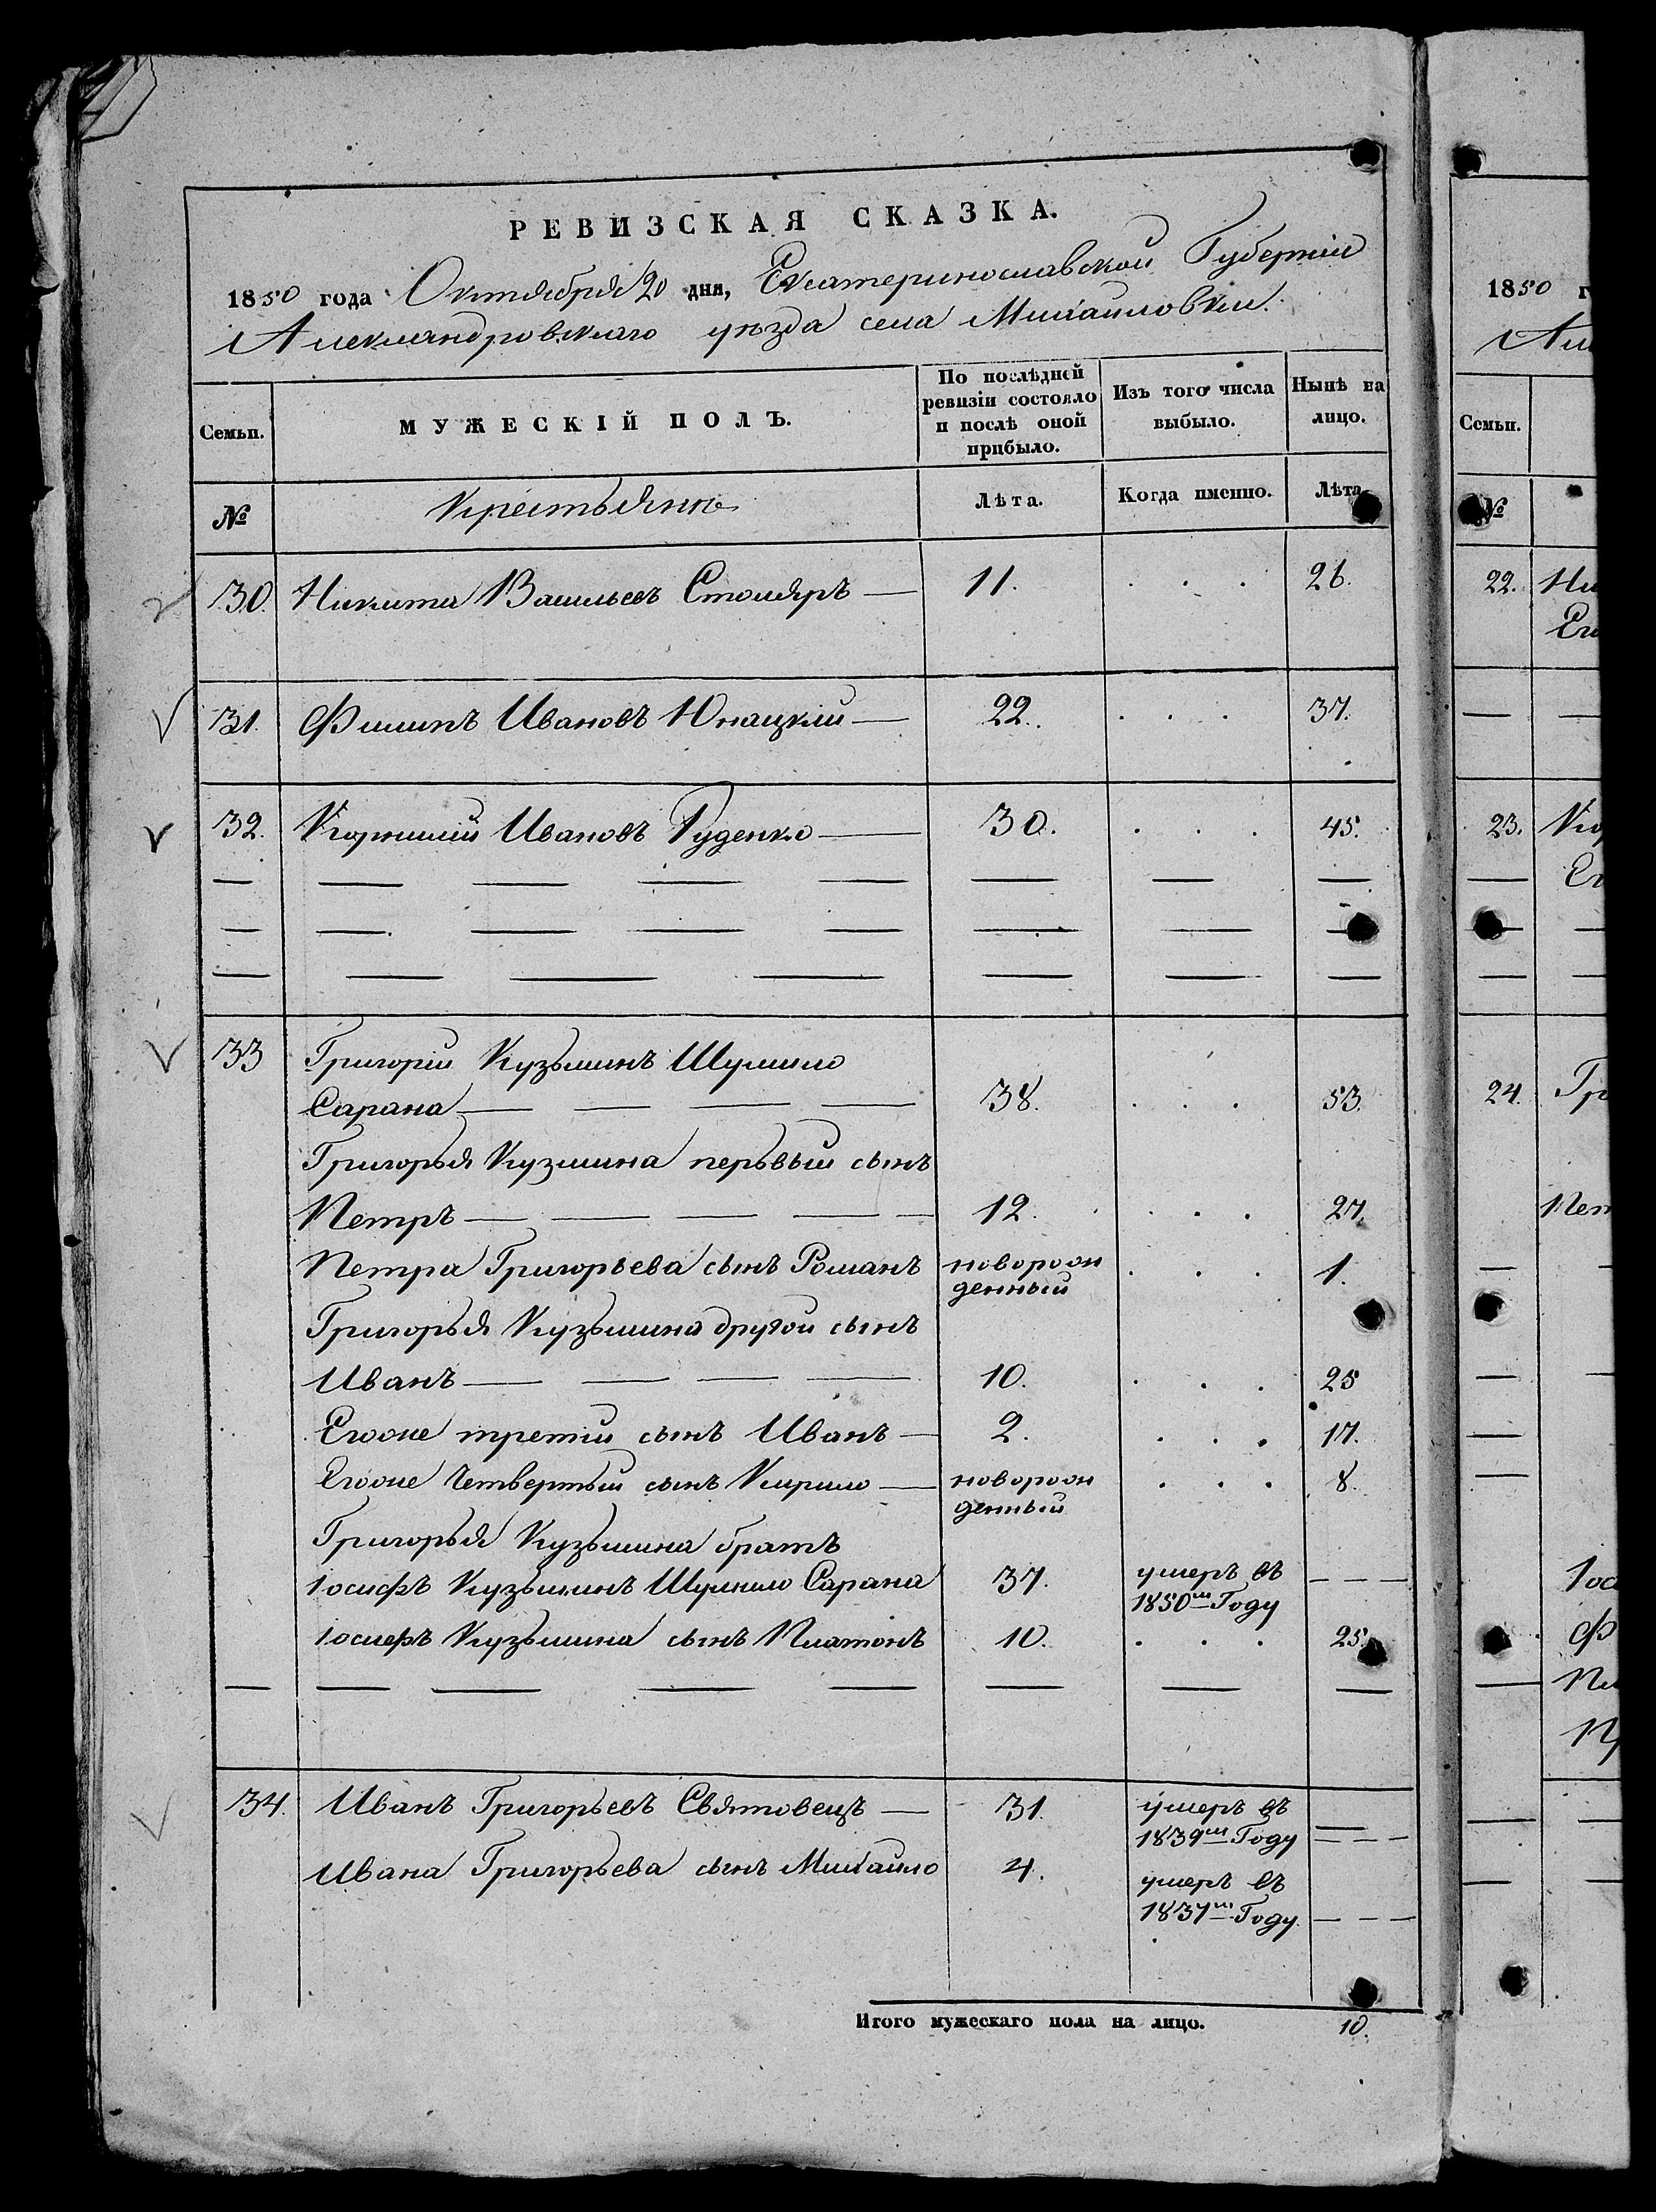 РЕВИЗСКАЯ СКАЗКА.
1850 года Октября 20 дня, Екатеринославской Губерніи
Александровскаго уѣзда села Михайловки.
Семьи.
МУЖЕСКІЙ ПОЛЪ.
По послѣдней
ревизіи состояло
и послѣ оной
прибыло.
Изъ того числа
выбыло.
Нынѣ на
лицо.
№
Крестьяне
Лѣта.
Когда именно.
Лѣта
30. Никита Васильевъ Столяръ — 11. . . . 26.
31. Филипъ Ивановъ Юнацкій — 22. . . . 37.
32. Корнилій Ивановъ Руденко — 30. . . . 45.
33 Григорій Кузьминъ Шумило
Сарана — — — — 38. . . . 53.
Григорья Кузмина первый сынъ
Петръ — — — — — 12. . . . 27.
Петра Григорьева сынъ Романъ новорож . . . 1.
денный
Григорья Кузьмина другой сынъ
Иванъ — — — — 10. . . . 25
Егоже третій сынъ Иванъ — 2. . . . 17.
Егоже Четвертый сынъ Кирило — новорож . . . 8.
денный
Григорья Кузьмина братъ
Іосифъ Кузьминъ Шумило Сарана 37. умеръ въ — — —
1850м Году
Іосифъ Кузьмина сынъ Платонъ 10. . . . 25.
34. Иванъ Григорьевъ Святовецъ — 31. умеръ въ
1839м Году — — —
Ивана Григорьева сынъ Михаило 4. умеръ въ
1837м Году. — — —
Итого мужескаго пола на лицо. 10.
1850 г
Ал
Семьи.
№
22. Ни
Его
23. Кор
Ег
24. Гр
Пет
Іос
Ф
Пл